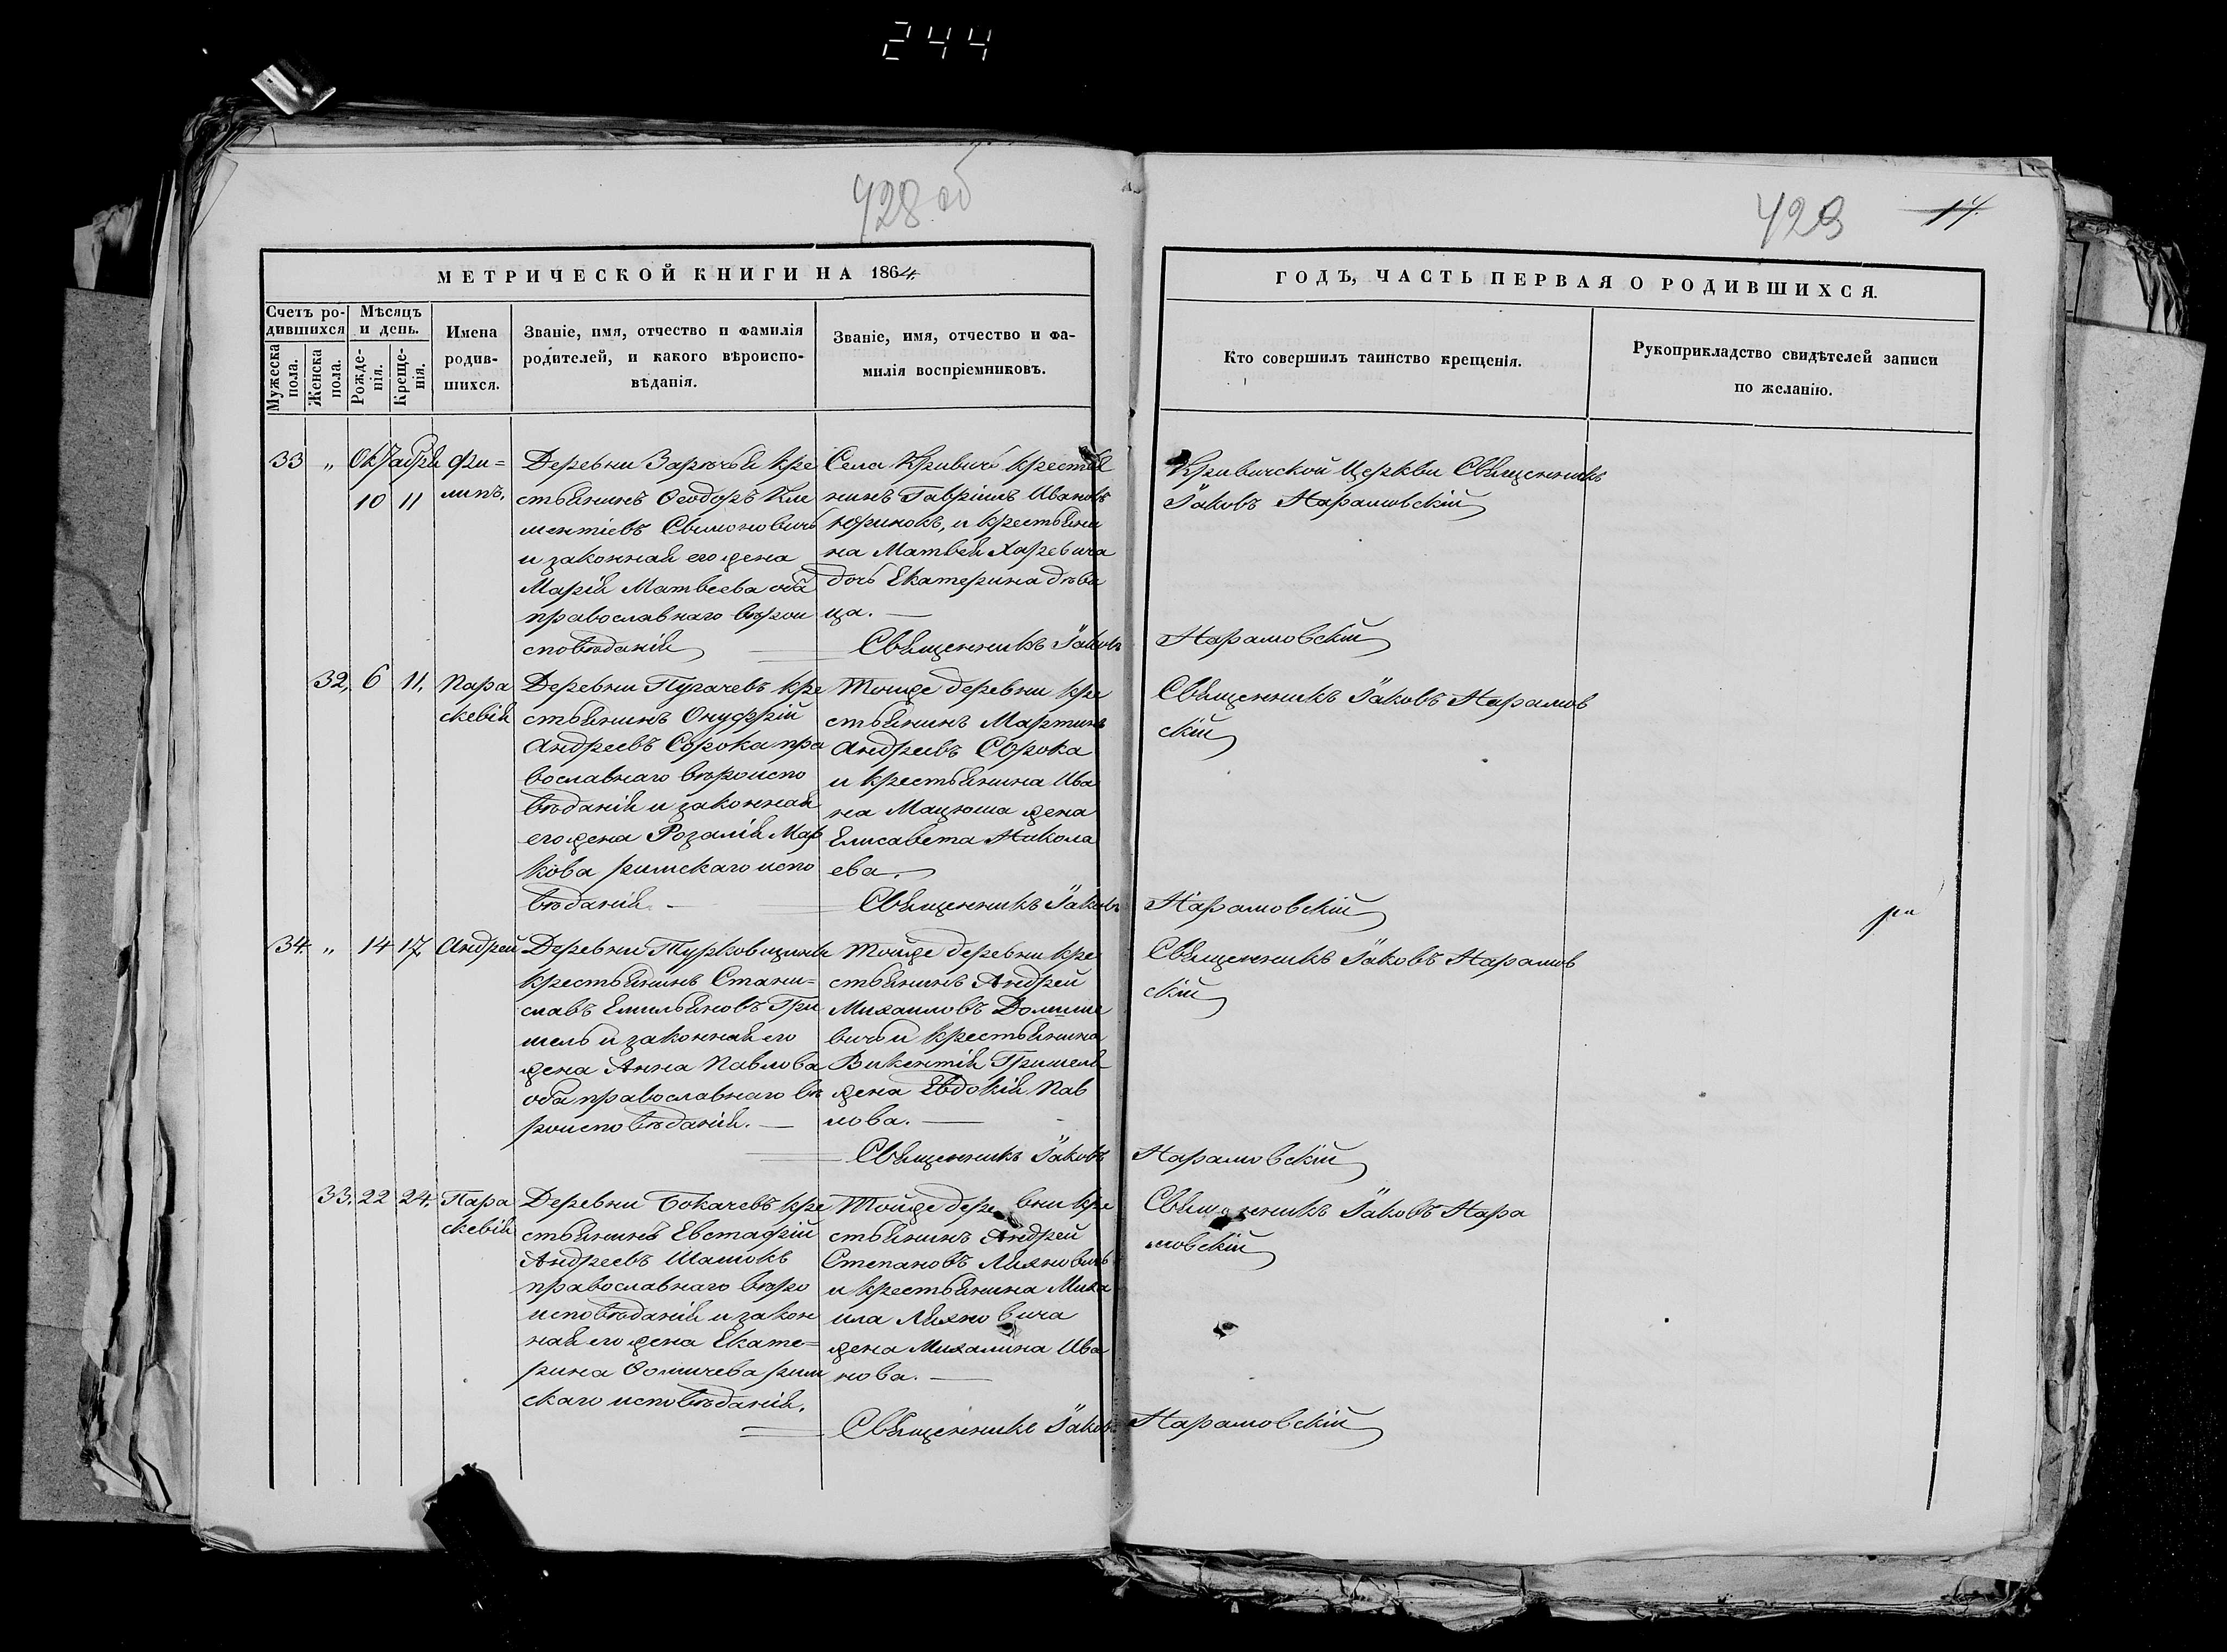 244
428 об
429 14
МЕТРИЧЕСКОЙ КНИГИ НА 1864
ГОДЪ, ЧАСТЬ ПЕРВАЯ О РОДИВШИХСЯ.
Счетъ ро-
дившихся
Мужеска
пола.
Женска
пола.
Мѣсяцъ
и день.
Рожде-
нія.
Креще-
нія.
Имена
родив-
шихся.
Званіе, имя, отчество и фамилія
родителей, и какого вѣроиспо-
вѣданія.
Званіе, имя, отчество и фа-
милія воспріемниковъ.
Кто совершилъ таинство крещенія.
Рукоприкладство свидѣтелей записи
по желанію.
33 „ Октября
10 11
Фи=
липъ.
Деревни Зарѣчья кре
стьянинъ Ѳеодоръ Кли
ментіевъ Симоновичъ
и законная его жена
Марія Матвеева оба
православнаго вѣрои
сповѣданія
Села Кривичь крестья
нинъ Гавріилъ Ивановъ
Юринокъ, и крестьяни
на Матвея Харевича
дочь Екатерина дѣви
ца. —
Священникъ Іаковъ Нарамовскій
Кривичской Церкви Священникъ
Іаковъ Нарамовскій
32, 6 11,
Пара
скевія
Деревни Пугачевъ кре
стьянинъ Онуфрій
Андреевъ Сорока пра
вославнаго вѣроиспо
вѣданія и законная
его жена Розалія Мар
кова римскаго испо
вѣданія. —
Тойже деревни кре
стьянинъ Мартинъ
Андреевъ Сорока
и крестьянина Ива
на Мацюша жена
Елисавета Никола
ева.
Священникъ Іаковъ Нарамовскій
Священникъ Іаковъ Нарамов
скій
34. „ 14 17, Андрей
Деревни Турковщизни
крестьянинъ Стани=
славъ Емильяновъ Гри
шель и законная его
жена Анна Павлова
оба православнаго вѣ
роисповѣданія. —
Тойже деревни кре
стьянинъ Андрей
Михаиловъ
вичь и крестьянина
Викентія Гришель
жена Евдокія Пав
лова. —
Священникъ Іаковъ Нарамовскій
Священникъ Іаковъ Нарамов
скій
33. 22 24.
Пара
скевія
Деревни Бокачевъ кре
стьянинъ Евстафій
Андреевъ Шамокъ
православнаго вѣро
исповѣданія и закон
ная его жена Екате=
рина Ѳомичева рим
скаго исповѣданія.
Тойже деревни кре
стьянинъ Андрей
Степановъ Ляхновичъ
и крестьянина Миха
ила Ляхновича
жена Михалина Ива
нова. —
Священникъ Іаковъ Нарамовскій
Священникъ Іаковъ Нара
мовскій